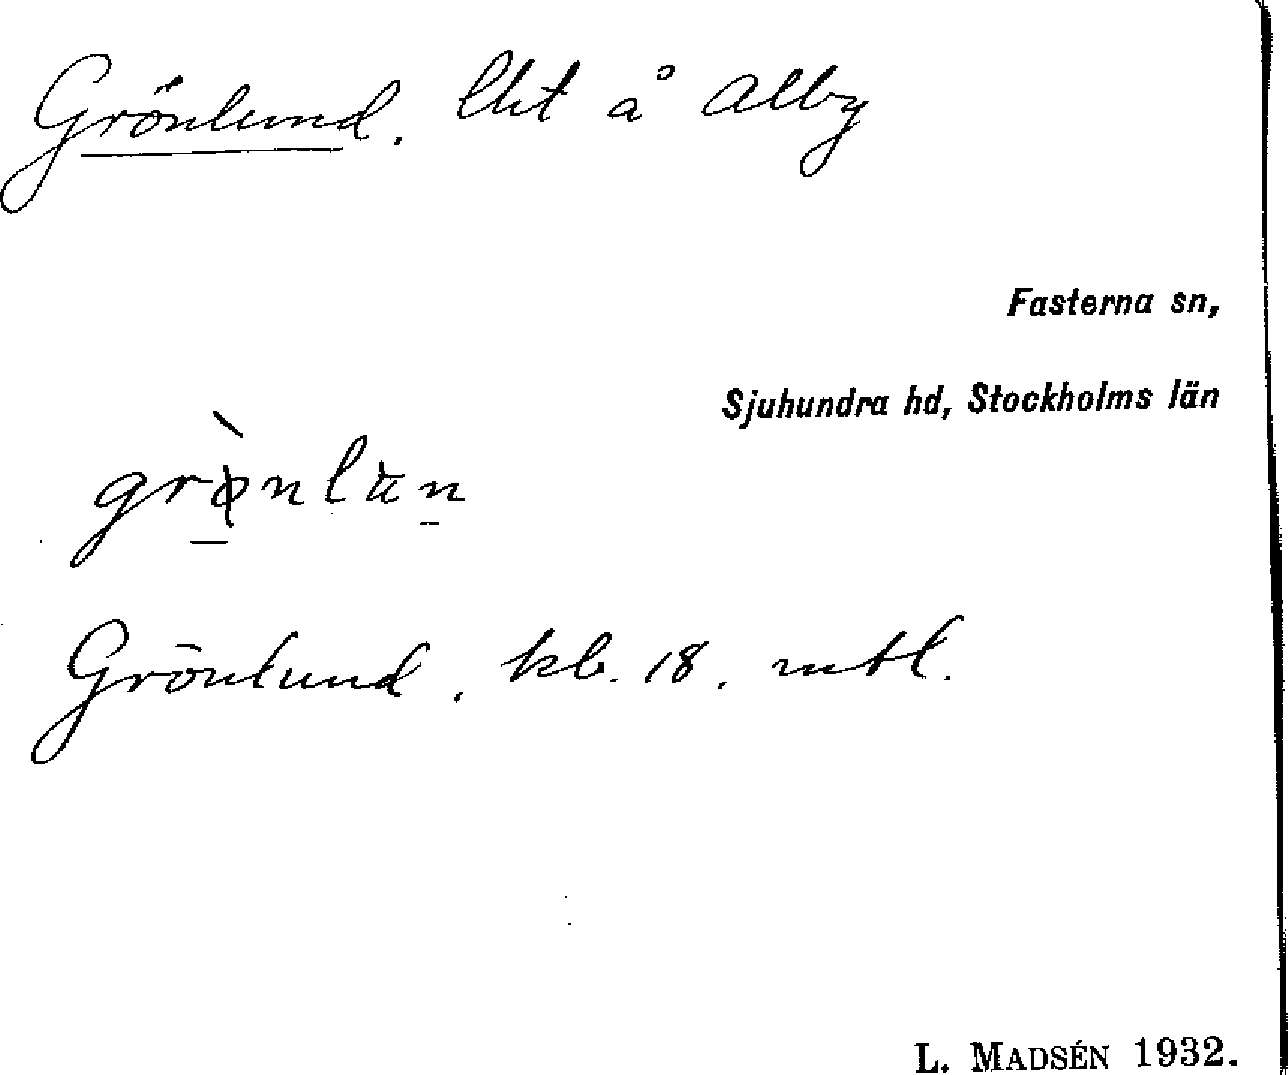 Grönlund. lht å Alby
Fasterna sn,
Sjuhundra hd, Stockholms län
Grönlund. kb. 18. mtl.
L. MADSÉN 1932.